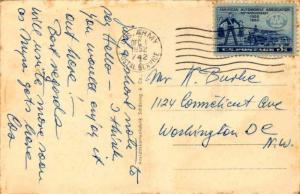 Just a short note to
say Hello - I think
you would enjoy it
out here!
Best regards
will write more soon
as Myra gets here
U.S. ARMY
1952
AMERICAN AUTOMOBILE ASSOCIATION
U.S. POSTAGE 3¢
Mr H. Burke
1124 Connecticut Ave
Washington DC
N.W.